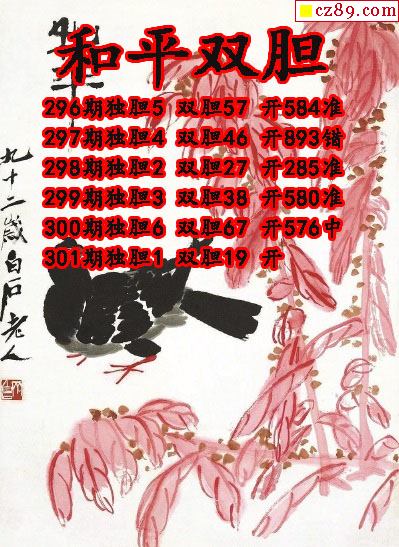 cz89.com
和平双胆
296期独胆5 双胆57 开584准
297期独胆4 双胆46 开893错
298期独胆2 双胆27 开285准
299期独胆3 双胆38 开580准
300期独胆6 双胆67 开576中
301期独胆1 双胆19 开
九十二岁白石老人